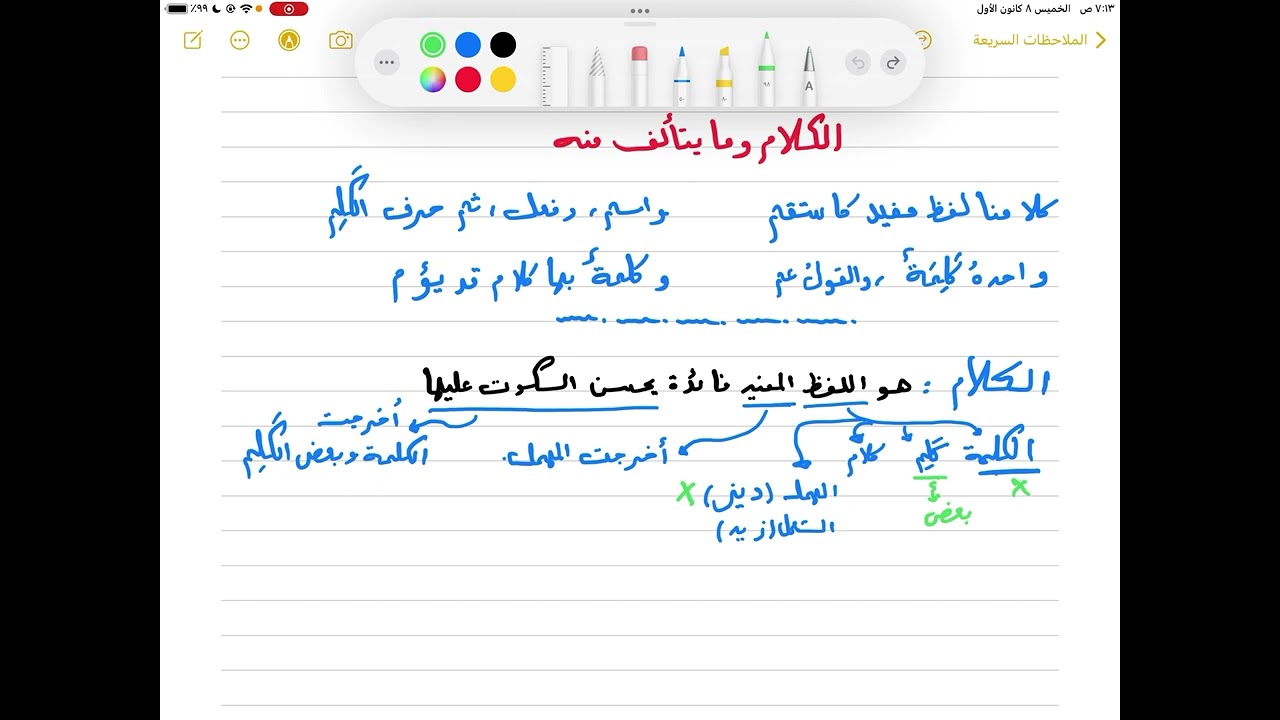 ٧:١٣ ص الخميس ٨ كانون الأول
٪٩٩
الملاحظات السريعة
A
٥٠
٨٠
٩٨
الكلام وما يتألف منه
كلامنا لفظ مفيد كاستقم واسم، وفعل، ثم حرف الكَلِم
واحدهُ كَلِمَةٌ، والقولُ عم وكلمةٌ بها كلام قد يؤم
الكلام : هو اللفظ المفيد فائدة يحسن السكوت عليها
الكلمة كَلِم كلام أخرجت المهمل. أُخرجت
الكلمة وبعض الكَلِم
X بعض
المهمل (ديز) X
(زيد)